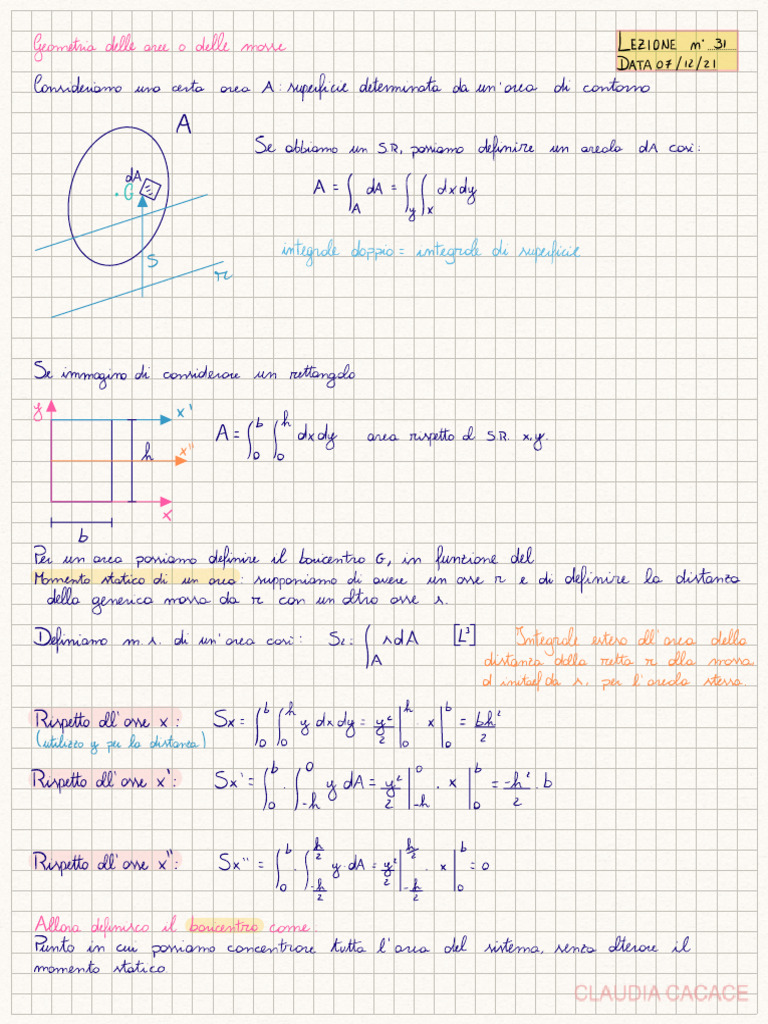 Geometria delle aree o delle masse
LEZIONE n° 31
DATA 07/12/21
Consideriamo una certa area A: superficie determinata da un'area di contorno
A
dA
G
S
r
Se abbiamo un S.R. possiamo definire un areola dA così:
A = ∫_A dA = ∫_y ∫_x dxdy
integrale doppio = integrale di superficie
Se immagino di considerare un rettangolo
y
x'
x"
h
x
b
A = ∫_0^b ∫_0^h dxdy area rispetto al S.R. x,y.
Per un area possiamo definire il baricentro G, in funzione del
Momento statico di un area: supponiamo di avere un asse r e di definire la distanza
della generica massa da r con un altro asse s.
Definiamo m.s. di un'area così: Sr: ∫_A s dA [L³]
Integrale esteso all'area della
distanza dalla retta r alla massa
da s, per l'areola stessa.
Rispetto all'asse x: Sx = ∫_0^b ∫_0^h y dxdy = y²/2 |_0^h x |_0^b = bh²/2
(utilizzo y per la distanza)
Rispetto all'asse x': Sx' = ∫_0^b · ∫_-h^0 y dA = y²/2 |_-h^0 · x |_0^b = -h²/2 · b
Rispetto all'asse x": Sx" = ∫_0^b · ∫_-h/2^h/2 y·dA = y²/2 |_-h/2^h/2 · x |_0^b = 0
Allora definisco il baricentro come:
Punto in cui possiamo concentrare tutta l'area del sistema, senza alterare il
momento statico.
CLAUDIA CACACE